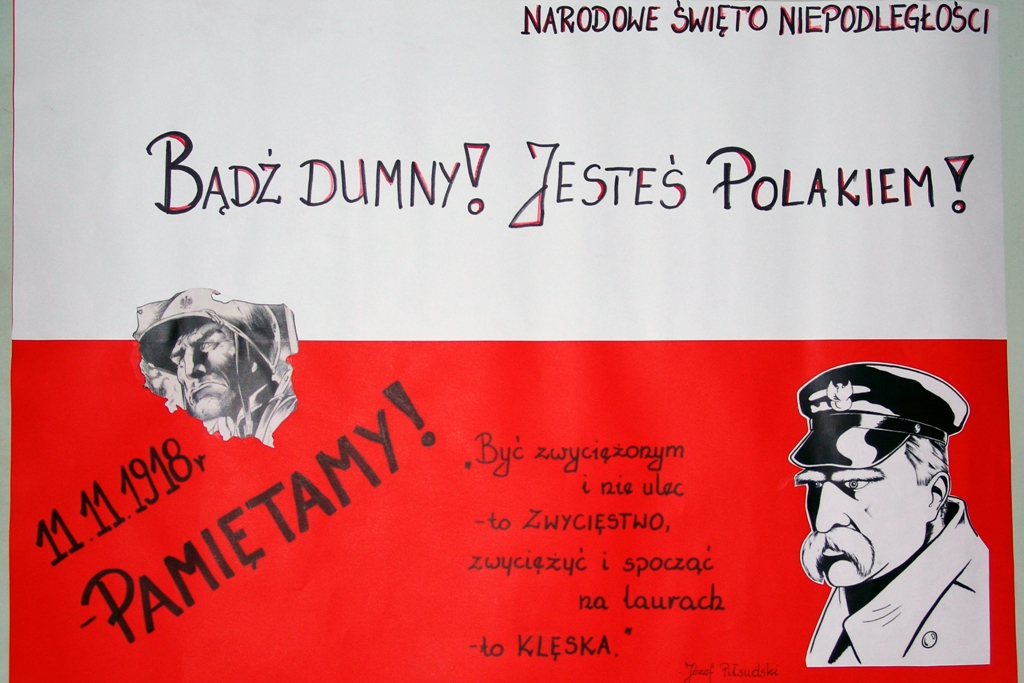 NARODOWE ŚWIĘTO NIEPODLEGŁOŚCI
BĄDŹ DUMNY! JESTEŚ POLAKIEM!
11.11.1918r
-PAMIĘTAMY!
„Być zwyciężonym
i nie ulec
-to ZWYCIĘSTWO,
zwyciężyć i spocząć
na laurach
-to KLĘSKA."
Józef Piłsudski